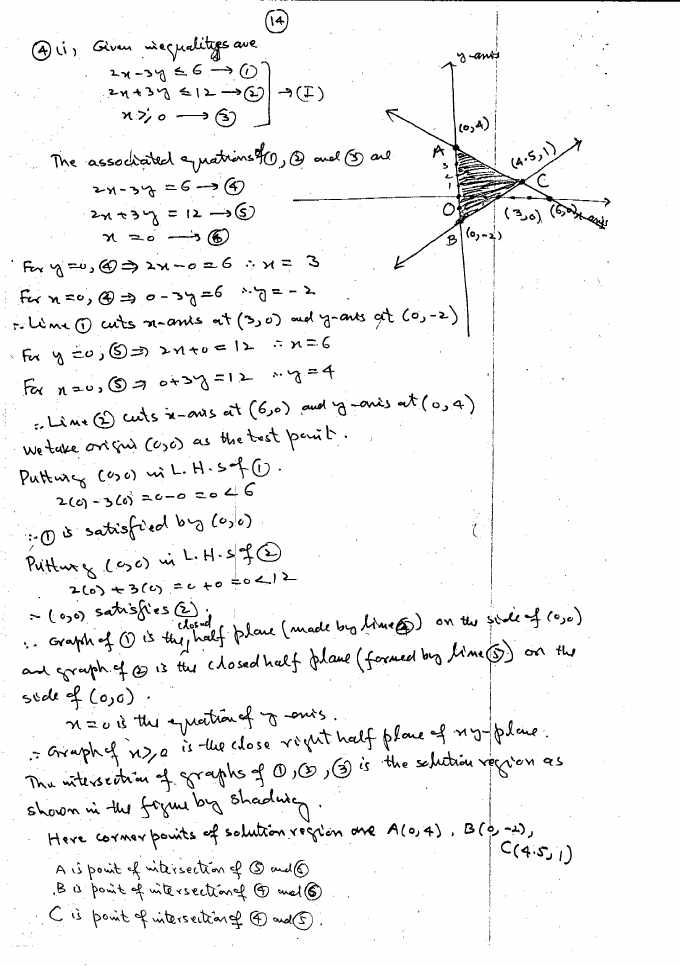 (14)
(4) (i), Given inequalities are
2x-3y ≤ 6 → (1)
2x+3y ≤ 12 → (2) → (I)
x ≥ 0 → (3)
The associated equations of (1), (2) and (3) are
2x-3y = 6 → (4)
2x+3y = 12 → (5)
x = 0 → (6)
For y=0, (4) ⇒ 2x-0=6 ∴ x = 3
For x=0, (4) ⇒ 0-3y=6 ∴ y = -2
∴ Line (1) cuts x-axis at (3,0) and y-axis at (0,-2)
For y=0, (5) ⇒ 2x+0=12 ∴ x=6
For x=0, (5) ⇒ 0+3y=12 ∴ y=4
∴ Line (2) cuts x-axis at (6,0) and y-axis at (0,4)
We take origin (0,0) as the test point.
Putting (0,0) in L.H.S of (1).
2(0)-3(0) = 0-0 = 0 < 6
∴ (1) is satisfied by (0,0)
Putting (0,0) in L.H.S of (2)
2(0)+3(0) = 0+0 = 0 < 12
∴ (0,0) satisfies (2).
∴ Graph of (1) is the closed half plane (made by line (4)) on the side of (0,0)
and graph of (2) is the closed half plane (formed by line (5)) on the
side of (0,0).
x=0 is the equation of y-axis.
∴ Graph of x≥0 is the close right half plane of xy-plane.
The intersection of graphs of (1),(2),(3) is the solution region as
shown in the figure by shading.
Here corner points of solution region are A(0,4), B(0,-2),
C(4.5,1)
A is point of intersection of (5) and (6)
B is point of intersection of (4) and (6)
C is point of intersection of (4) and (5).
y-axis
(0,4)
A
(4.5,1)
C
3
2
1
O
(3,0)
(6,0)
x-axis
B
(0,-2)